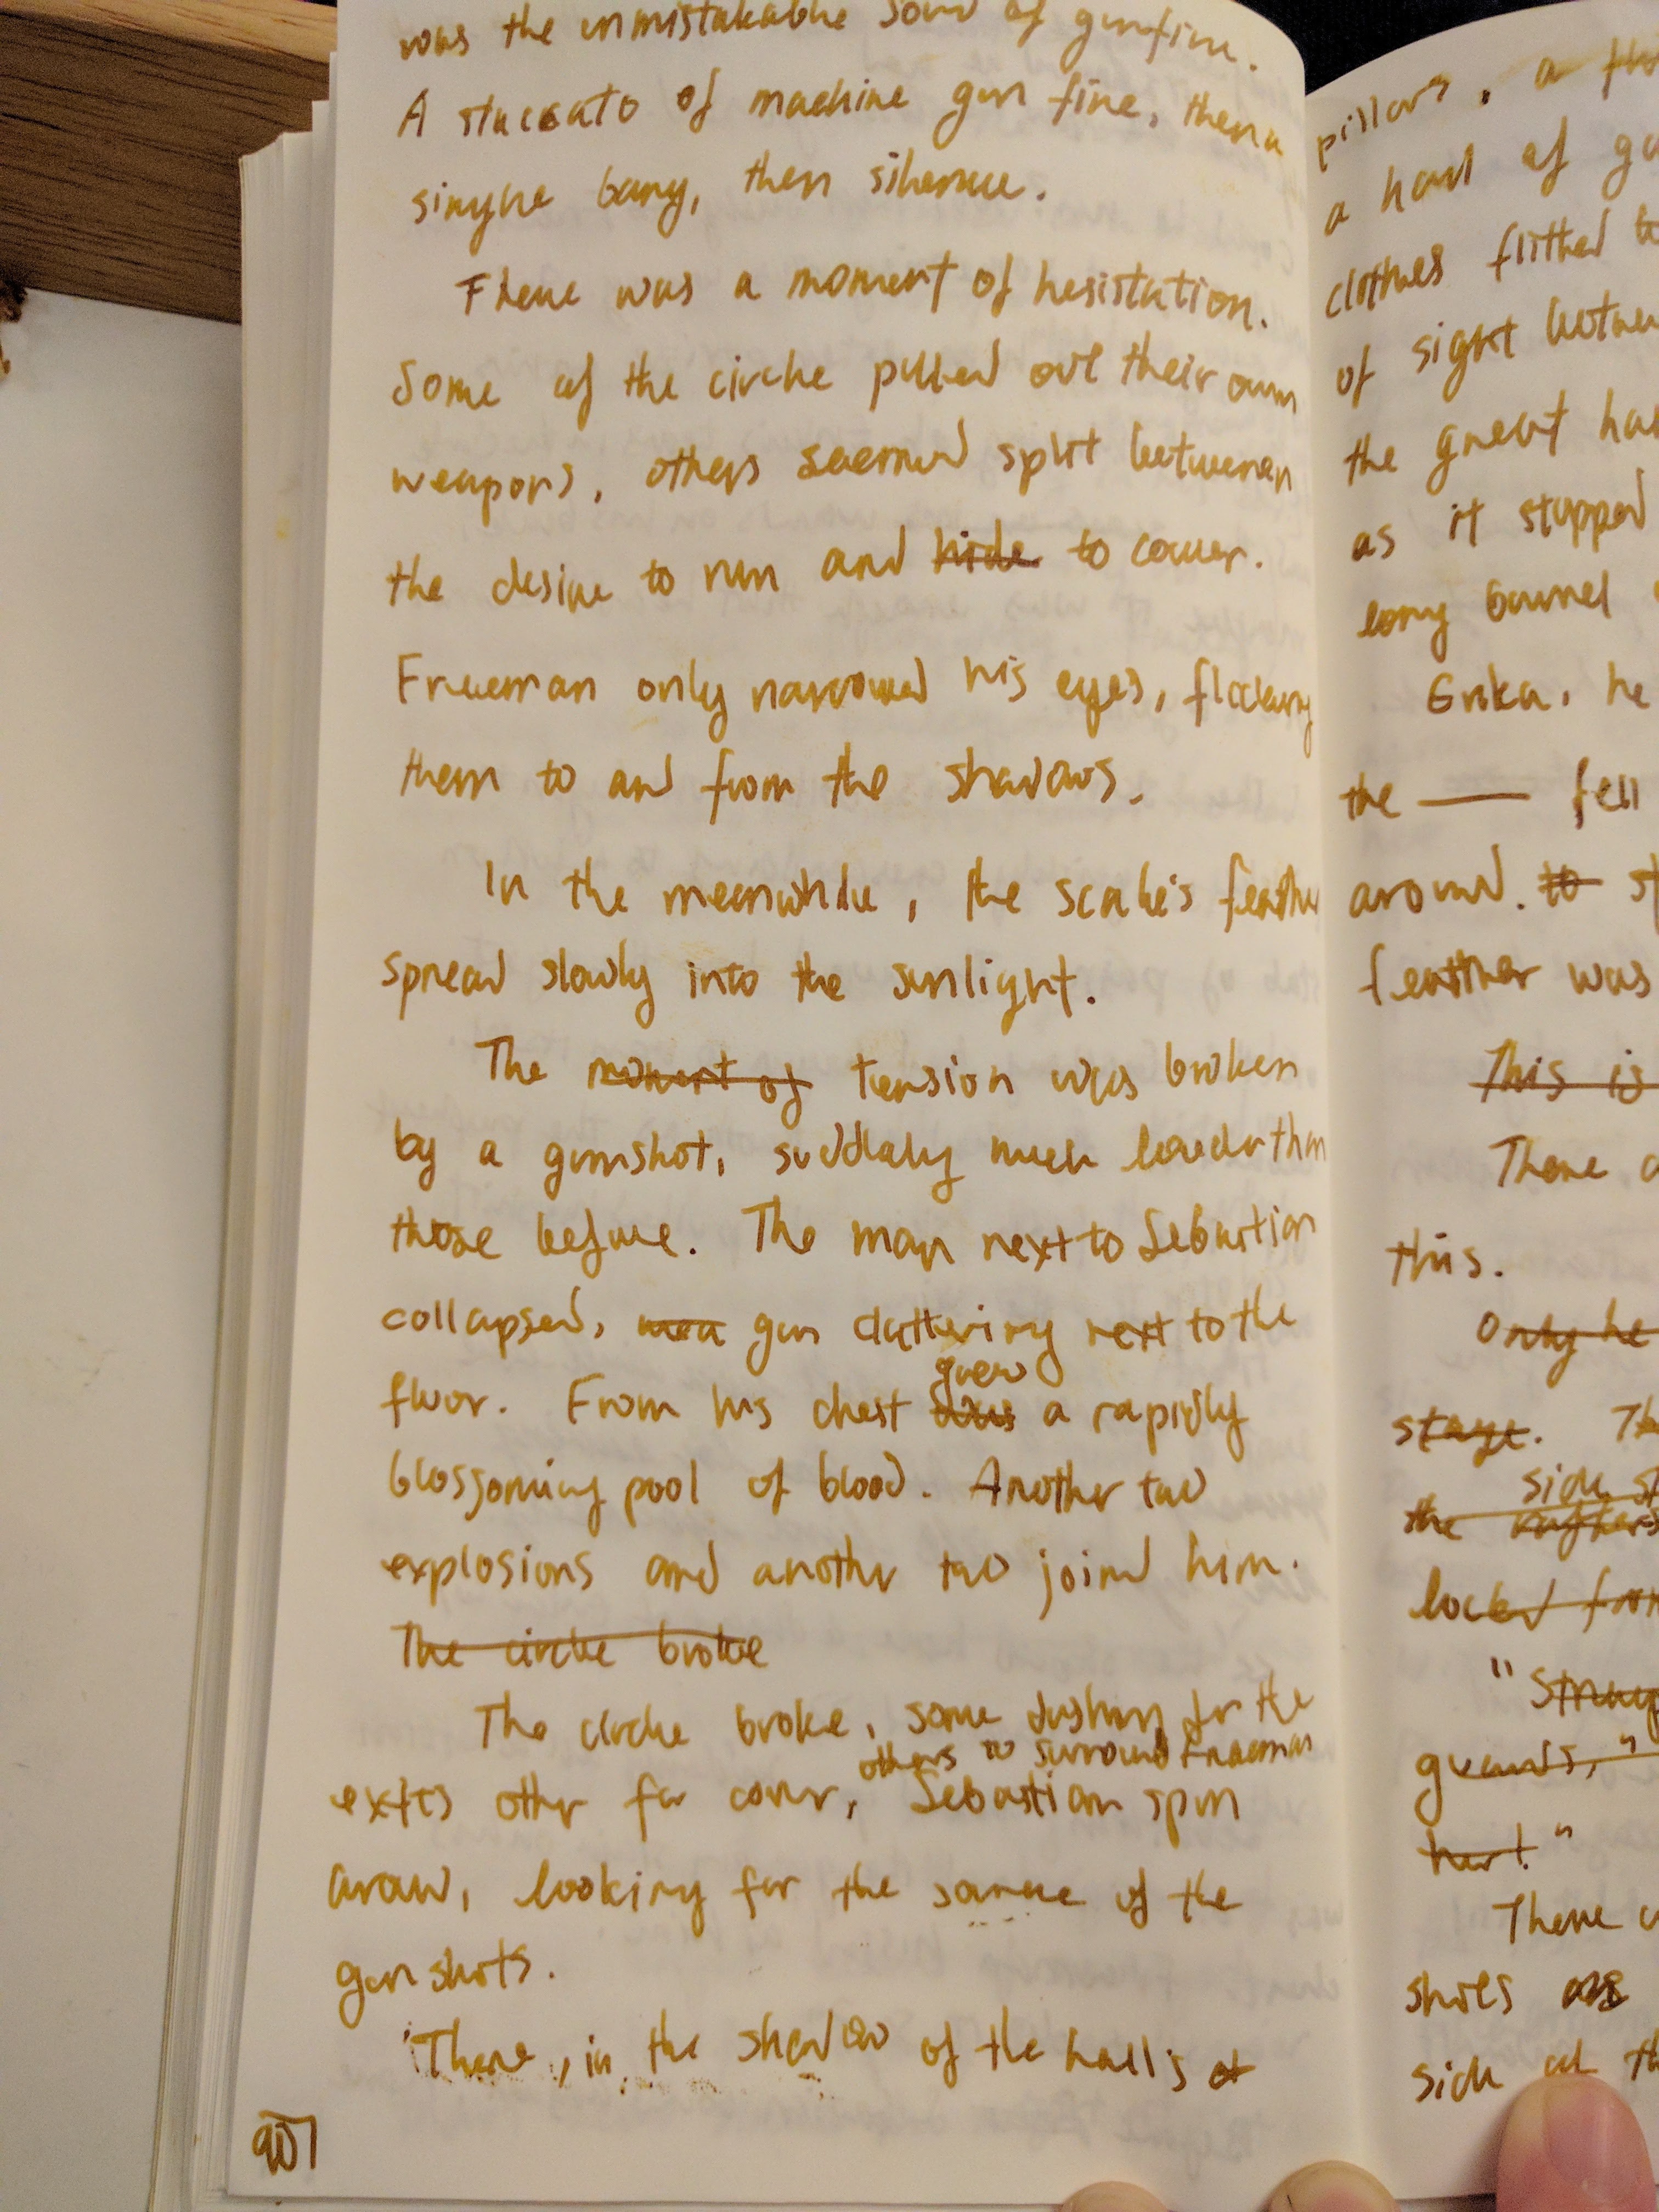 was the unmistakable sound of gunfire.
A staccato of machine gun fire, then a
single bang, then silence.
There was a moment of hesistation.
Some of the circle pulled out their own
weapons, others seemed split between
the desire to run and hide to cower.
Freeman only narrowed his eyes, flicking
them to and from the shadows.
In the meanwhile, the scale's feather
spread slowly into the sunlight.
The moment of tension was broken
by a gunshot, suddenly much louder than
those before. The man next to Sebastian
collapsed, gun clattering next to the
floor. From his chest was a rapidly
grew
blossoming pool of blood. Another two
explosions and another two joined him.
The circle broke
The circle broke, some dashing for the
others to surround Freeman
exits other for cover, Sebastian spun
around, looking for the source of the
gunshots.
There, in the shadow of the hall's
907
pillars, a
a hail of
clothes flitted
of sight between
the great
as it stopped
long barrel
Erika, he
the —— fell
around. to
feather was
This is
There
this.
Only he
stage.
side
the
locked from
"
guards,"
hart."
There
shots
side of